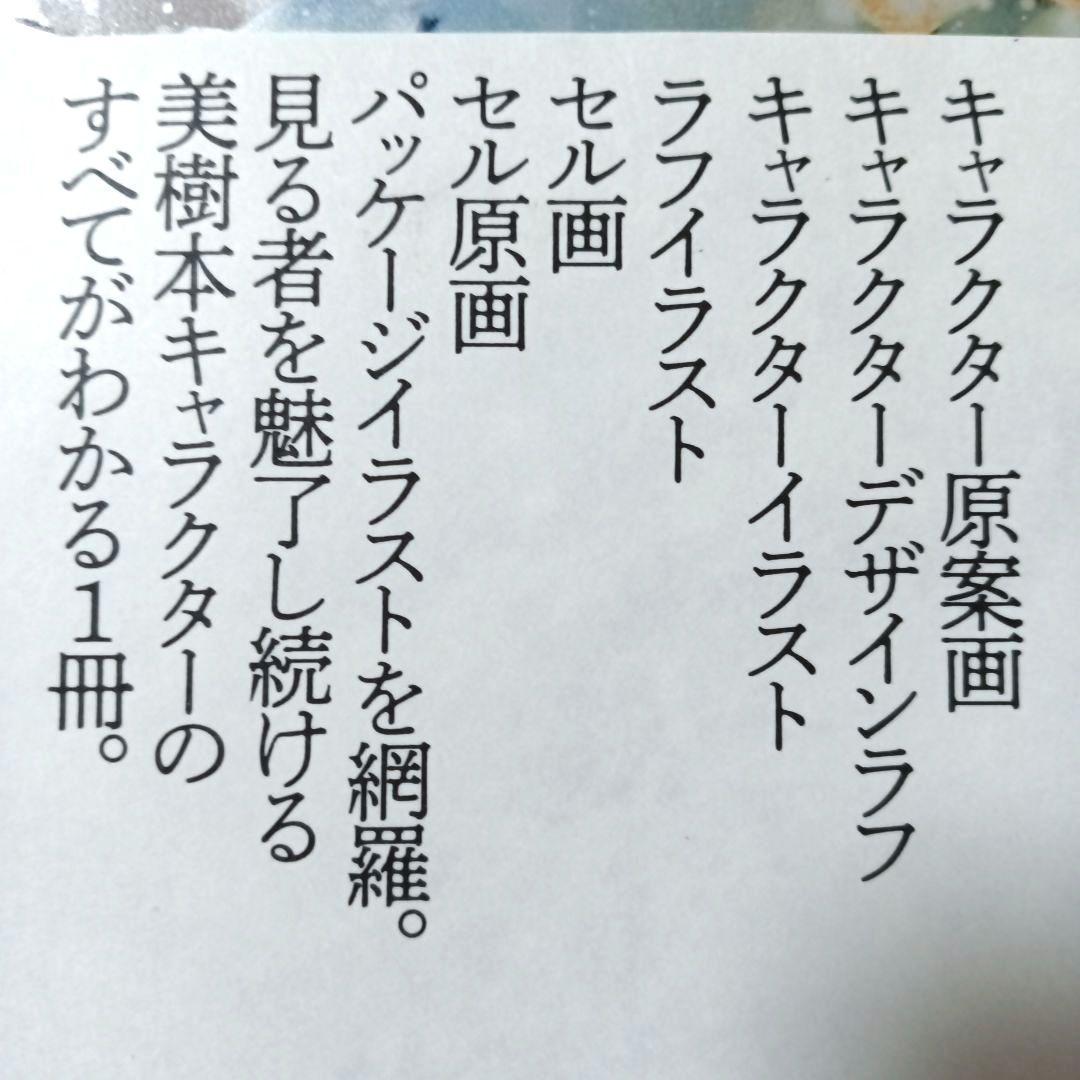 キャラクター原案画
キャラクターデザインラフ
キャラクターイラスト
ラフイラスト
セル画
セル原画
パッケージイラストを網羅。
見る者を魅了し続ける
美樹本キャラクターの
すべてがわかる1冊。